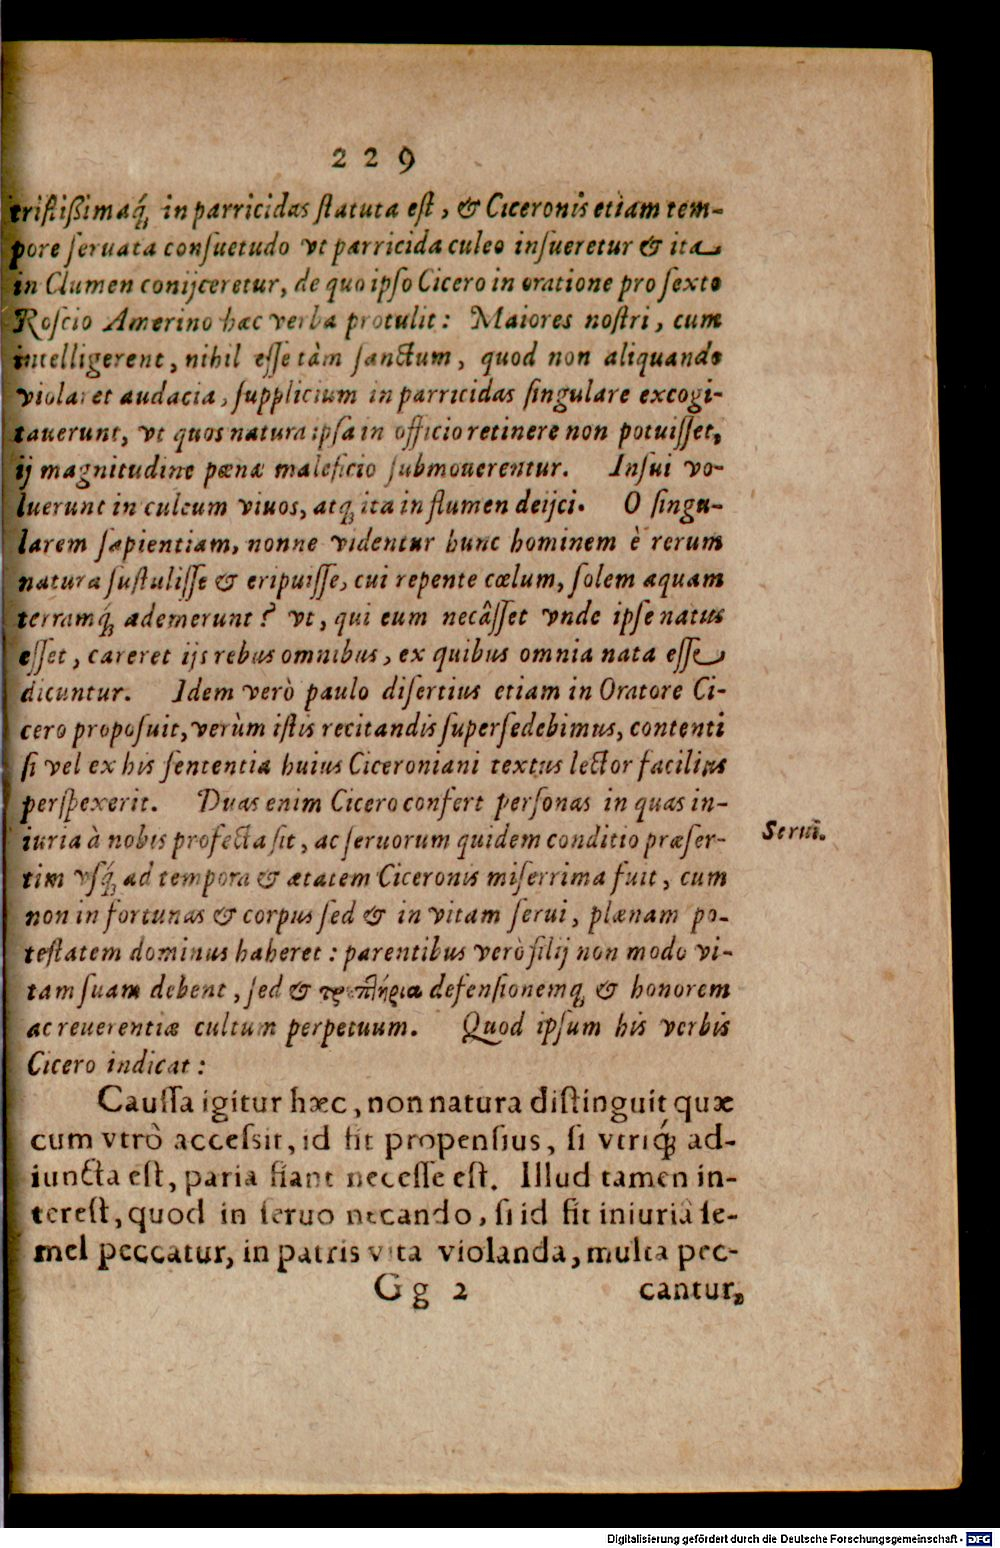 229
triſtiſſimaq́; in parricidas ſtatuta eſt, & Ciceronis etiam tem-
pore ſeruata conſuetudo vt parricida culeo inſueretur & ita
in Clumen conijceretur, de quo ipſo Cicero in oratione pro ſexto
Roſcio Amerino hæc verba protulit: Maiores noſtri, cum
intelligerent, nihil eſſe tàm ſanctum, quod non aliquando
violaret audacia, ſupplicium in parricidas ſingulare excogi-
tauerunt, vt quos natura ipſa in officio retinere non potuiſſet,
ij magnitudine pœnæ maleficio ſubmouerentur. Inſui vo-
luerunt in culeum viuos, atq; ita in flumen deijci. O ſingu-
larem ſapientiam, nonne videntur hunc hominem è rerum
natura ſuſtuliſſe & eripuiſſe, cui repente cœlum, ſolem aquam
terramq́; ademerunt? vt, qui eum necâſſet vnde ipſe natus
eſſet, careret ijs rebus omnibus, ex quibus omnia nata eſſe
dicuntur. Idem verò paulo diſertius etiam in Oratore Ci-
cero propoſuit, verùm iſtis recitandis ſuperſedebimus, contenti
ſi vel ex his ſententia huius Ciceroniani textus lector facilius
perſpexerit. Duas enim Cicero confert perſonas in quas in-
iuria à nobis profecta ſit, ac ſeruorum quidem conditio præſer-
Serui.
tim vſq́; ad tempora & ætatem Ciceronis miſerrima fuit, cum
non in fortunas & corpus ſed & in vitam ſerui, plænam po-
teſtatem dominus haberet: parentibus verò filij non modo vi-
tam ſuam debent, ſed & defenſionemq; & honorem
ac reuerentiæ cultum perpetuum. Quod ipſum his verbis
Cicero indicat:
Cauſſa igitur hæc, non natura diſtinguit quæ
cum vtrò acceſsit, id fit propenſius, ſi vtriq́; ad-
iuncta eſt, paria fiant neceſſe eſt. Illud tamen in-
tereſt, quod in ſeruo necando, ſi id fit iniuriâ ſe-
mel peccatur, in patris vita violanda, multa pec-
Gg 2 cantur,
Digitalisierung gefördert durch die Deutsche Forschungsgemeinschaft - DFG